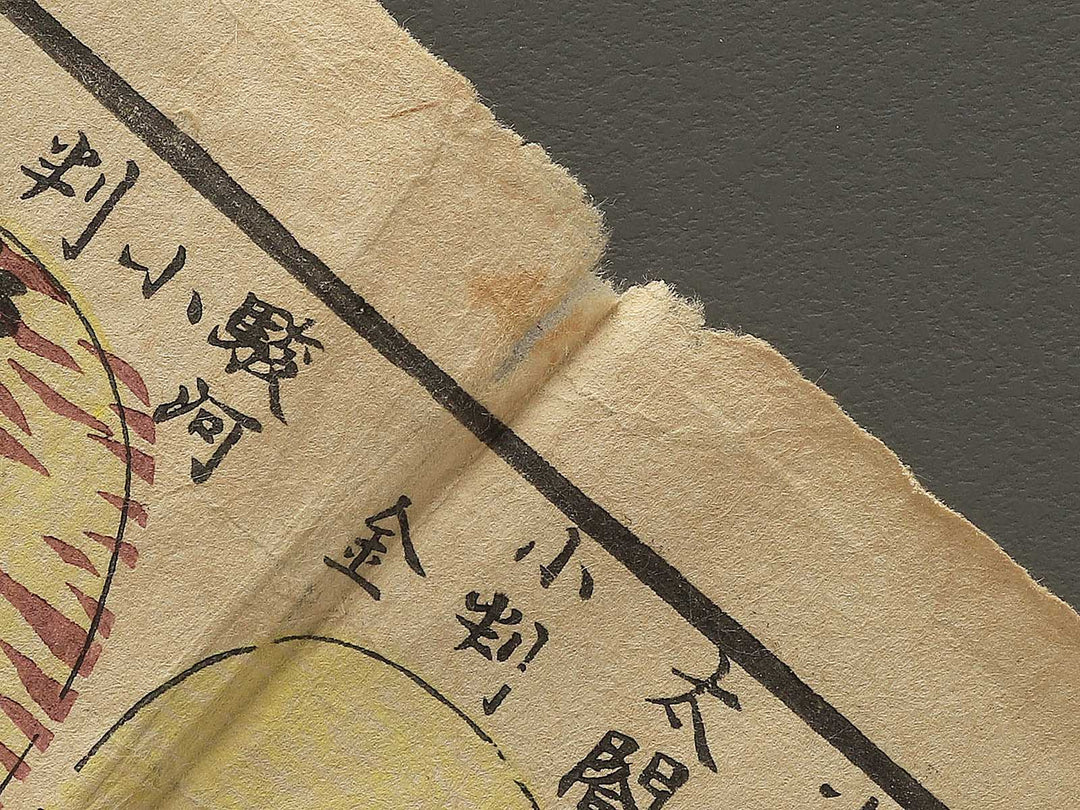 駿河
小
判
太閤
小判
金